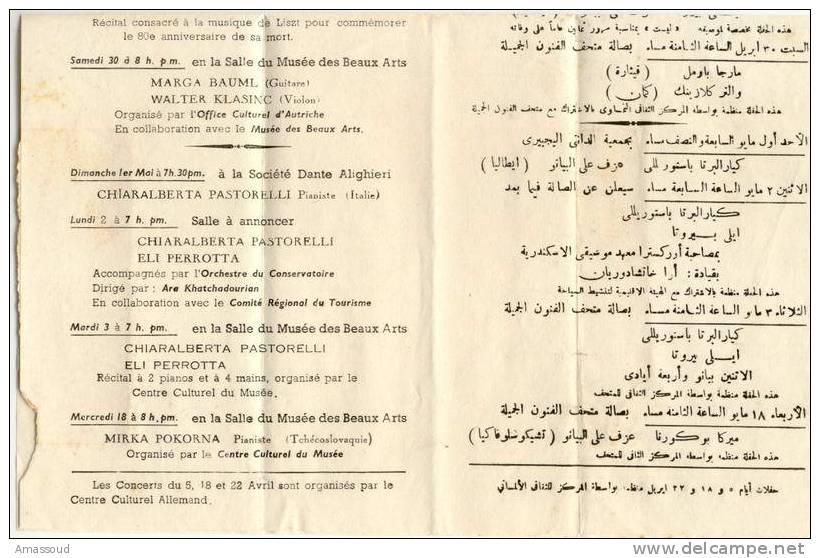 Récital consacré à la musique de Liszt pour commémorer
le 80e anniversaire de sa mort.
Samedi 30 à 8 h. pm. en la Salle du Musée des Beaux Arts
MARGA BAUML (Guitare)
WALTER KLASINC (Violon)
Organisé par l'Office Culturel d'Autriche
En collaboration avec le Musée des Beaux Arts.
Dimanche 1er Mai à 7h.30pm. à la Société Dante Alighieri
CHIARALBERTA PASTORELLI Pianiste (Italie)
Lundi 2 à 7 h. pm. Salle à annoncer
CHIARALBERTA PASTORELLI
ELI PERROTTA
Accompagnés par l'Orchestre du Conservatoire
Dirigé par : Ara Khatchadourian
En collaboration avec le Comité Régional du Tourisme
Mardi 3 à 7 h. pm. en la Salle du Musée des Beaux Arts
CHIARALBERTA PASTORELLI
ELI PERROTTA
Récital à 2 pianos et à 4 mains, organisé par le
Centre Culturel du Musée.
Mercredi 18 à 8 h. pm. en la Salle du Musée des Beaux Arts
MIRKA POKORNA Pianiste (Tchécoslovaquie)
Organisé par le Centre Culturel du Musée
Les Concerts du 5, 18 et 22 Avril sont organisés par le
Centre Culturel Allemand.
هذه الحفلة مخصصة لموسيقة « ليست » بمناسبة مرور ثمانين عاماً على وفاته
السبت ٣٠ ابريل الساعة الثامنة مساء بصالة متحف الفنون الجميلة
مارجا باومل ( قيثارة )
والتر كلازينك ( كمان )
هذه الحفلة منظمة بواسطه المركز الثقافى النمساوى بالاشتراك مع متحف الفنون الجميلة
الاحد أول مايو السابعة والنصف مساء بجمعية الدانتى اليجييرى
كيارالبرتا باستورللى عزف على البيانو ( ايطاليا )
الاثنين ٢ مايو الساعة السابعة مساء سيعلن عن الصالة فيما بعد
كيارالبرتا باستوريللى
ايلى بيروتا
بمصاحبة أوركسترا معهد موسيقى الاسكندرية
بقيادة : أرا خاتشادوريان
هذه الحفلة منظمة بالاشتراك مع الهيئة الاقليمية لتنشيط السياحة
الثلاثاء ٣ مايو الساعة الثامنة مساء بصالة متحف الفنون الجميلة
كيارالبرتا باستوريللى
ايلى بيروتا
الاثنين بيانو وأربعة أيادى
هذه الحفلة منظمة بواسطة المركز الثقافى للمتحف
الأربعاء ١٨ مايو الساعة الثامنة مساء بصالة متحف الفنون الجميلة
ميركا بوكورنا عزف على البيانو ( تشيكوسلوفاكيا )
هذه الحفلة منظمة بواسطة المركز الثقافى للمتحف
حفلات أيام ٥ و ١٨ و ٢٢ ابريل منظمة بواسطة المركز الثقافى الألمانى
Amassoud
delcampe.net